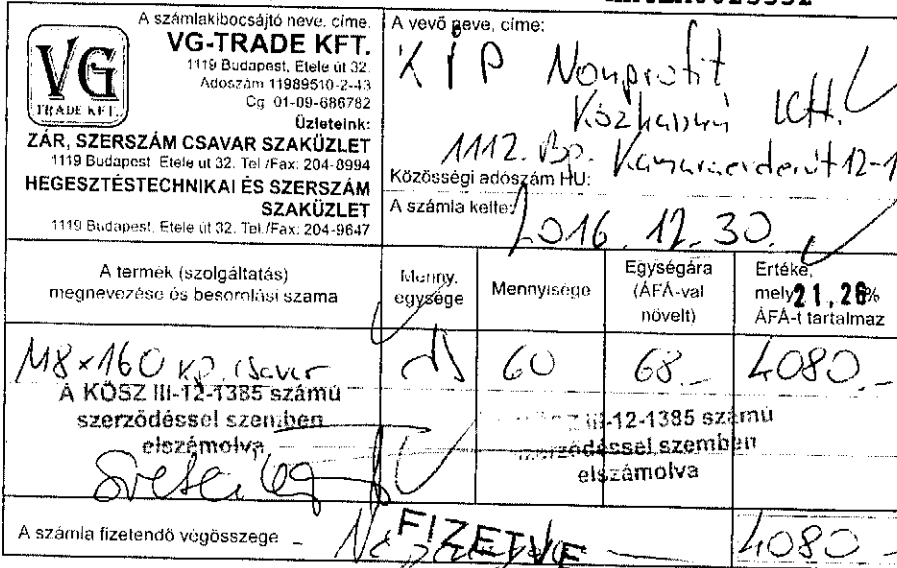 A számlakibocsájtó neve, címe.
VG
TRADE KFT.
VG-TRADE KFT.
1119 Budapest, Etele út 32.
Adószám 11989510-2-43
Cg. 01-09-686782
Üzleteink:
ZÁR, SZERSZÁM CSAVAR SZAKÜZLET
1119 Budapest Etele ut 32. Tel /Fax: 204-8994
HEGESZTÉSTECHNIKAI ÉS SZERSZÁM
SZAKÜZLET
1119 Budapest, Etele út 32. Tel./Fax: 204-9647
A vevő neve, címe:
KIP Nonprofit
Közhasznú Kft.
1112. Bp. Kamaraerdei út 12-1
Közösségi adószám HU:
A számla kelte:
2016. 12. 30.
A termék (szolgáltatás)
megnevezése és besorolási szama
Menny.
egysége
Mennyisége
Egységára
(ÁFÁ-val
növelt)
Értéke,
mely 21,26%
ÁFÁ-t tartalmaz
M8×160 kp. csavar
60
68.-
4080.-
A KÖSZ III-12-1385 számú
szerződéssel szemben
elszámolva
III-12-1385 számú
szerződéssel szemben
elszámolva
A számla fizetendő végösszege
FIZETVE
4080.-